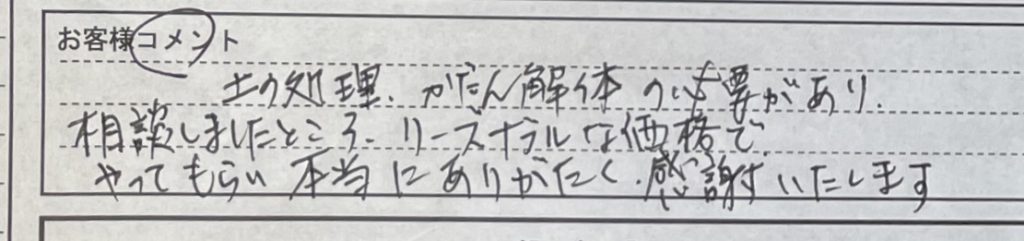 お客様コメント
土の処理、かだん解体の必要があり、
相談しましたところ、リーズナブルな価格で
やってもらい本当にありがたく、感謝いたします